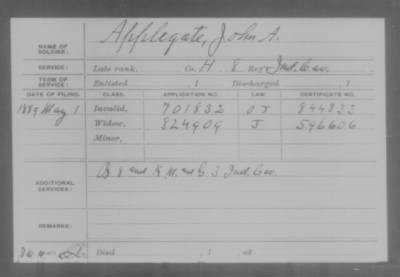 NAME OF SOLDIER: Applegate, John A.
SERVICE: Late rank, Co. H 8 Reg't Ind. Cav.
TERM OF SERVICE: Enlisted , 1 Discharged , 1
DATE OF FILING. CLASS. APPLICATION NO. LAW. CERTIFICATE NO.
1889 May 1 Invalid, 701832 844333
Widow, 824909 J 596606
Minor,
ADDITIONAL SERVICES: B 8 and K M. and G 3 Ind. Cav.
REMARKS:
Died , 1 , at